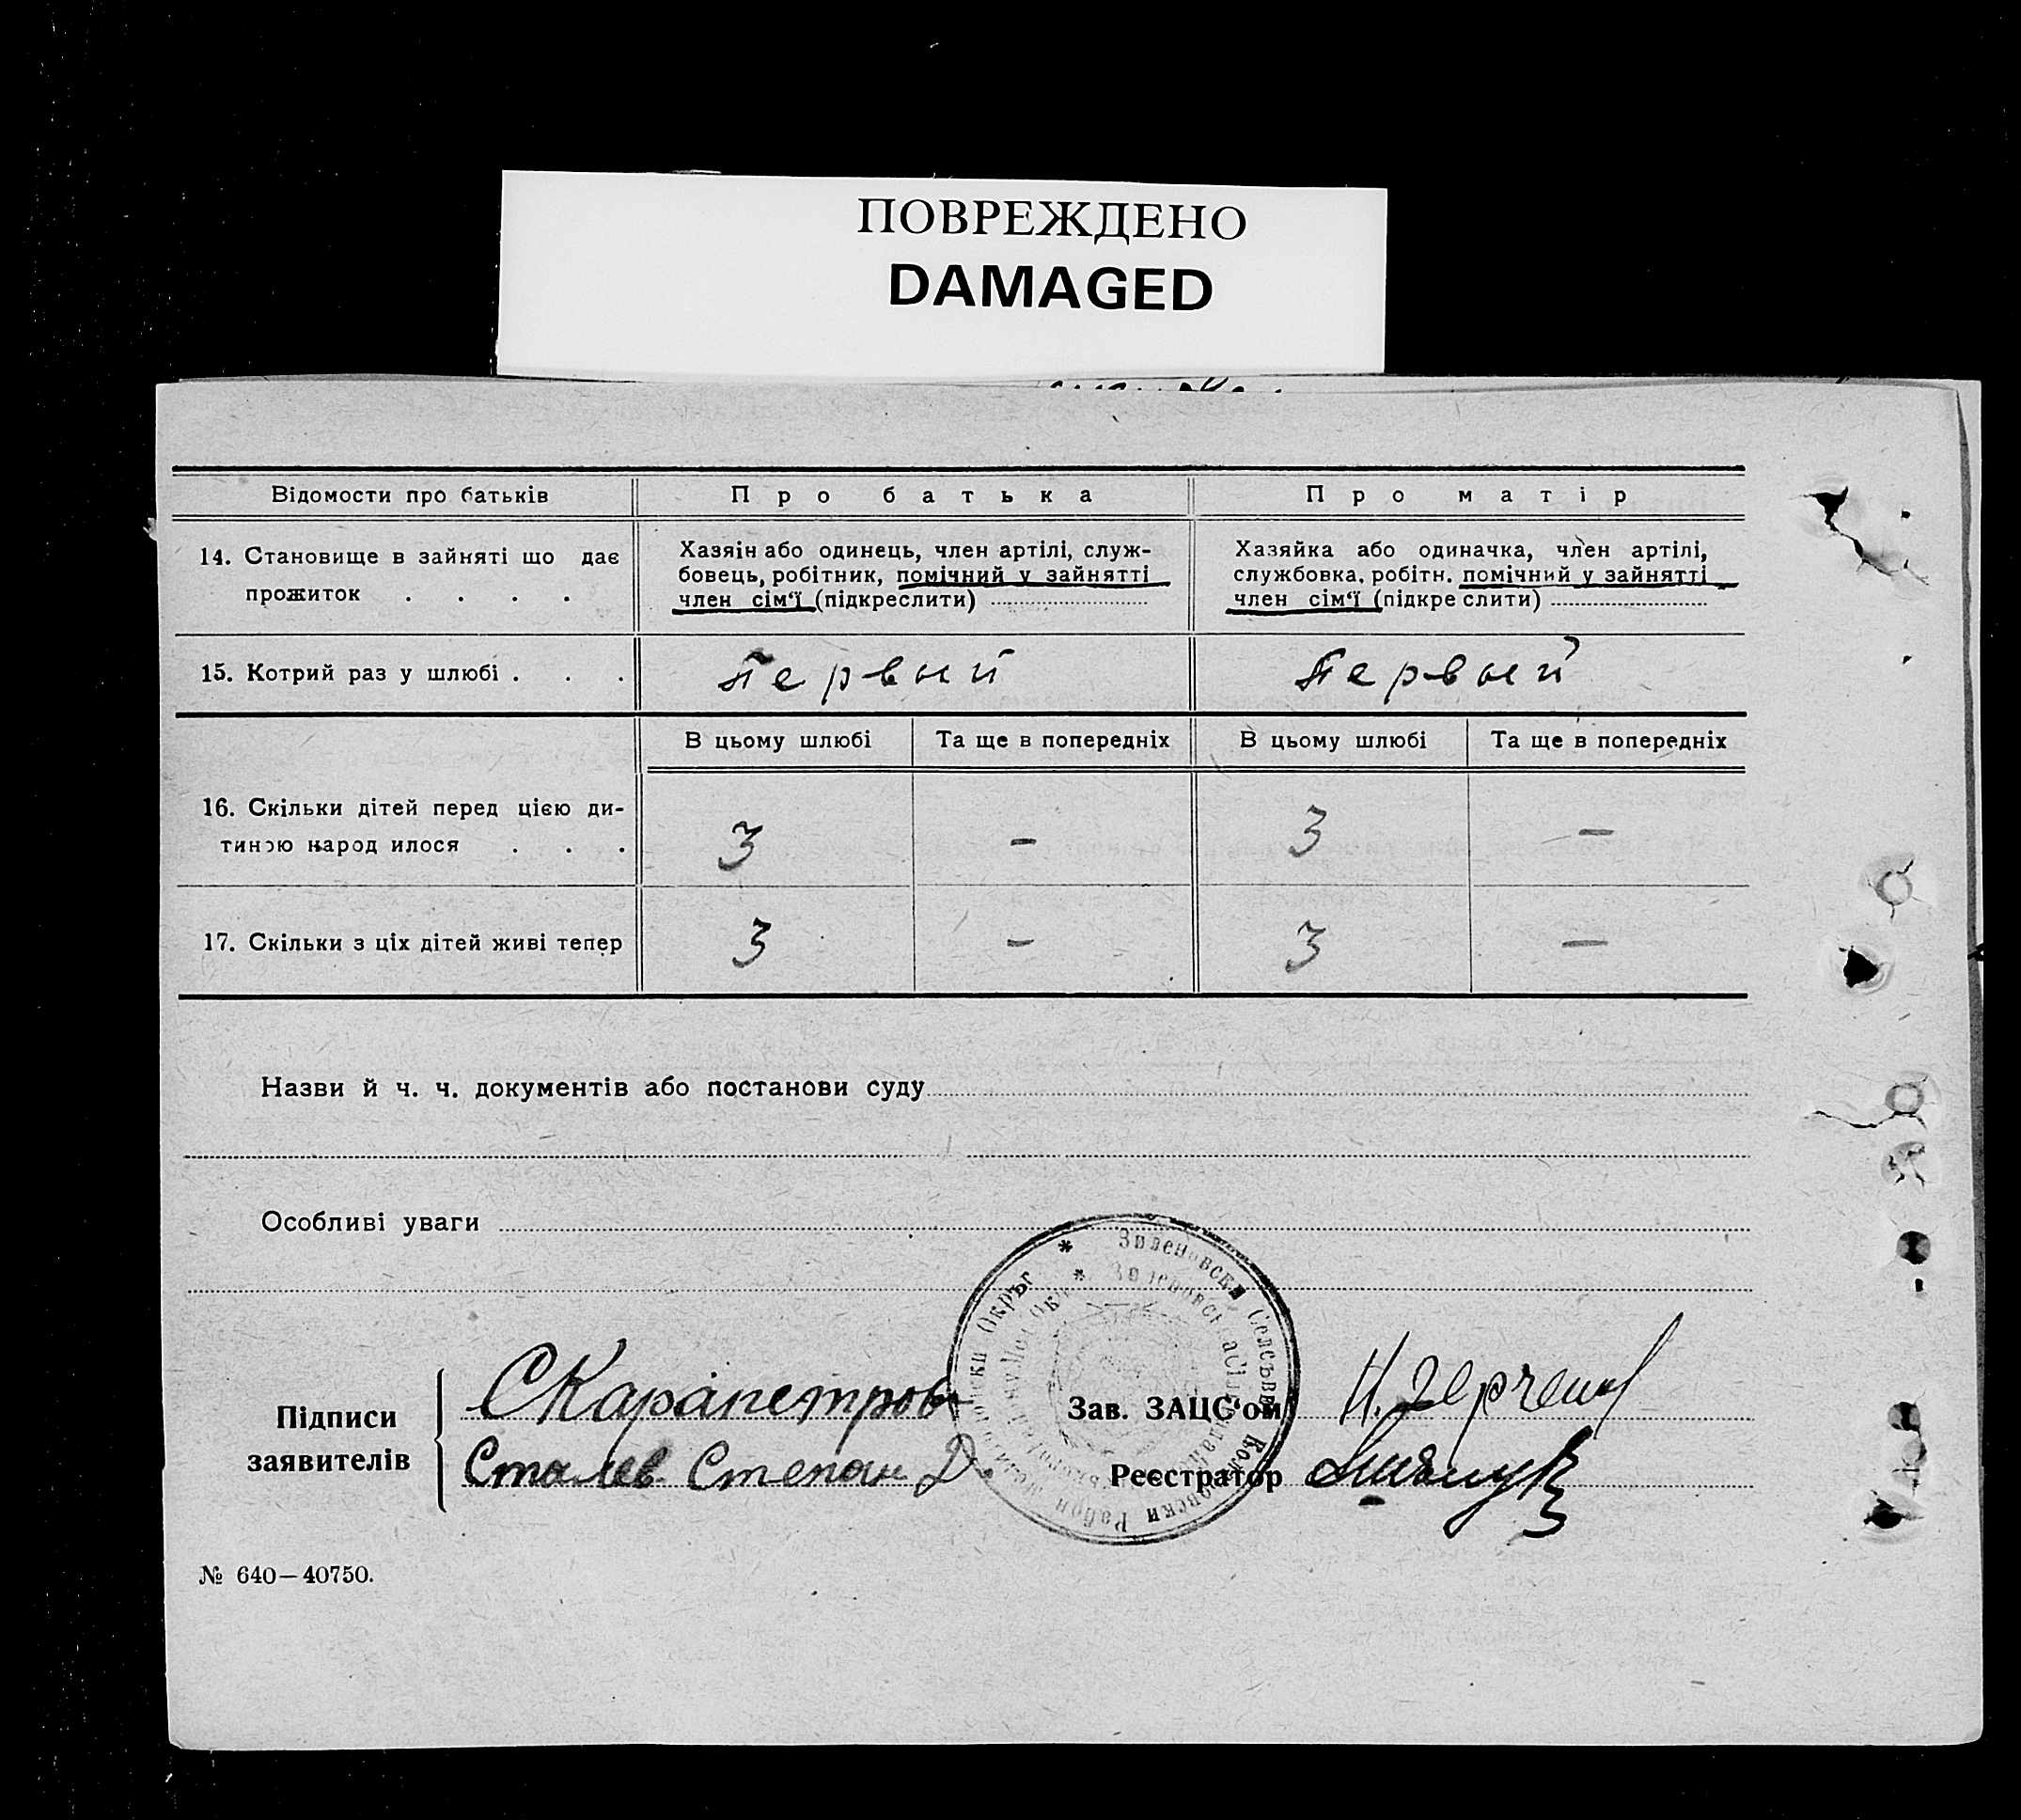 ПОВРЕЖДЕНО
DAMAGED
Відомости про батьків
Про батька
Про матір
14. Становище в зайняті що дає
прожиток . . . .
Хазяїн або одинець, член артілі, служ-
бовець, робітник, помічний у зайнятті
член сім‘ї (підкреслити)
Хазяйка або одиначка, член артілі,
службовка, робітн. помічний у зайнятті
член сім‘ї (підкреслити)
15. Котрий раз у шлюбі . . .
Первый
Первый
В цьому шлюбі
Та ще в попередніх
В цьому шлюбі
Та ще в попередніх
16. Скільки дітей перед цією ди-
тиною народилося . . .
3
–
3
–
17. Скільки з ціх дітей живі тепер
3
–
3
–
Назви й ч. ч. документів або постанови суду
Особливі уваги
Підписи
заявителів
СКарапетров
Сталев Степан Д.
Зав. ЗАЦС‘ом
Реєстратор
* Окръг
Селсъвет
Район
№ 640—40750.